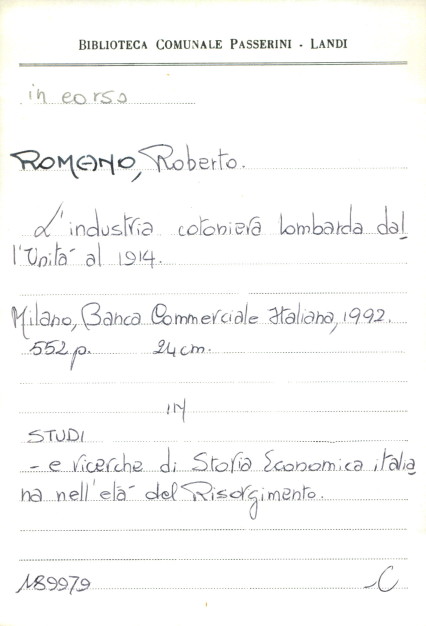 BIBLIOTECA COMUNALE PASSERINI - LANDI
in corso
ROMANO, Roberto.
L'industria cotoniera lombarda dal
l'Unità al 1914.
Milano, Banca Commerciale Italiana, 1992.
552 p. 24 cm.
IN
STUDI
- e ricerche di Storia Economica italia
na nell'età del Risorgimento.
189979 C